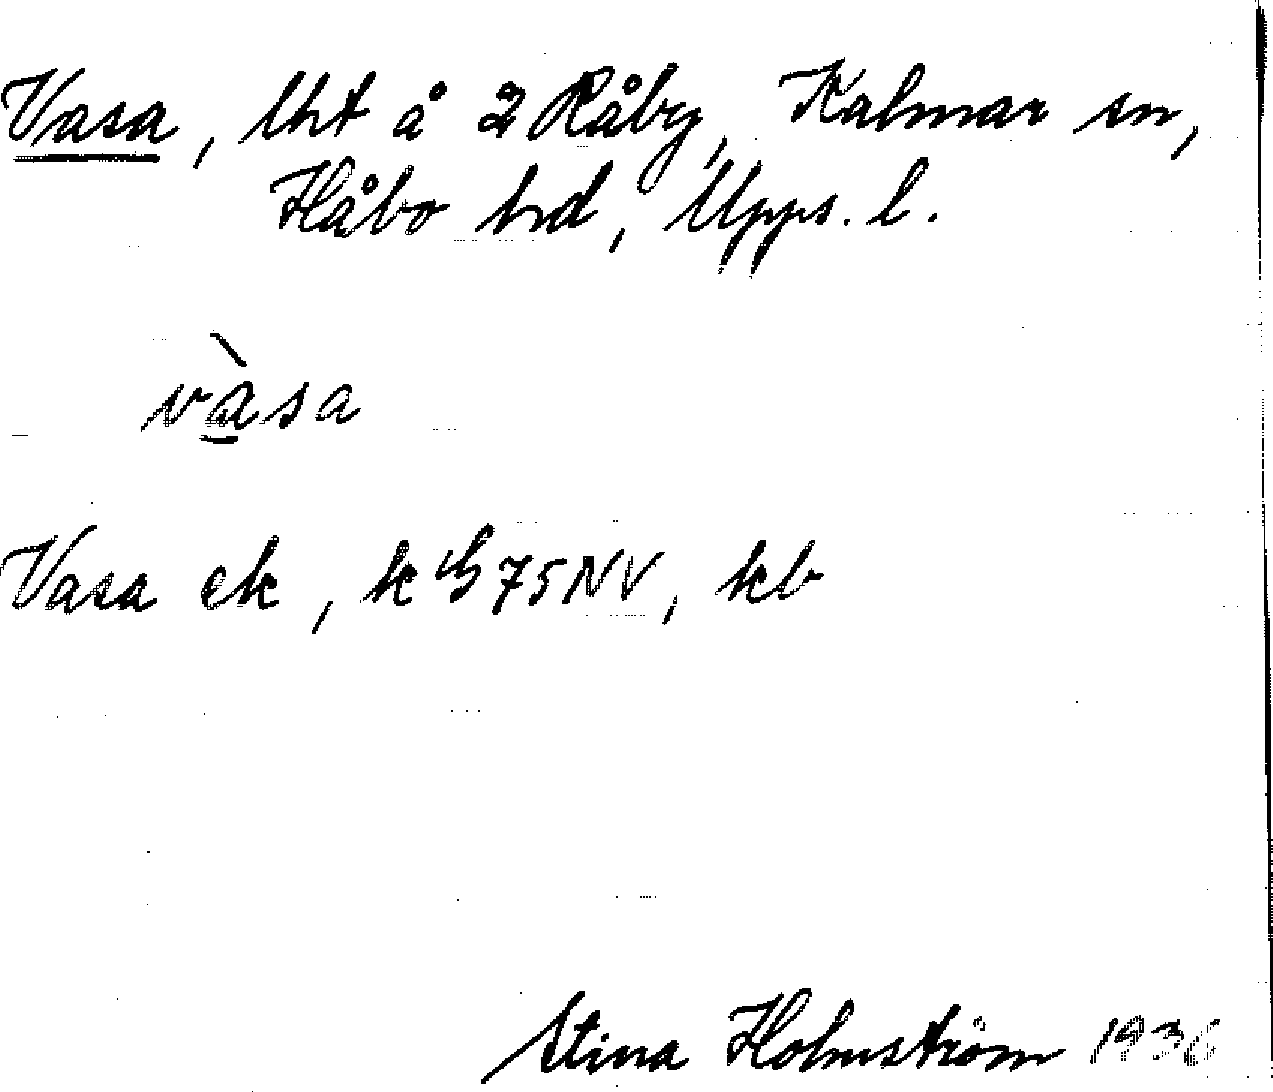 Vasa, lht å 2 Råby, Kalmar sn,
Håbo hd, Upps. l.
vàsa
Vasa ek, k G 75 NV, kb
Stina Holmström 1936